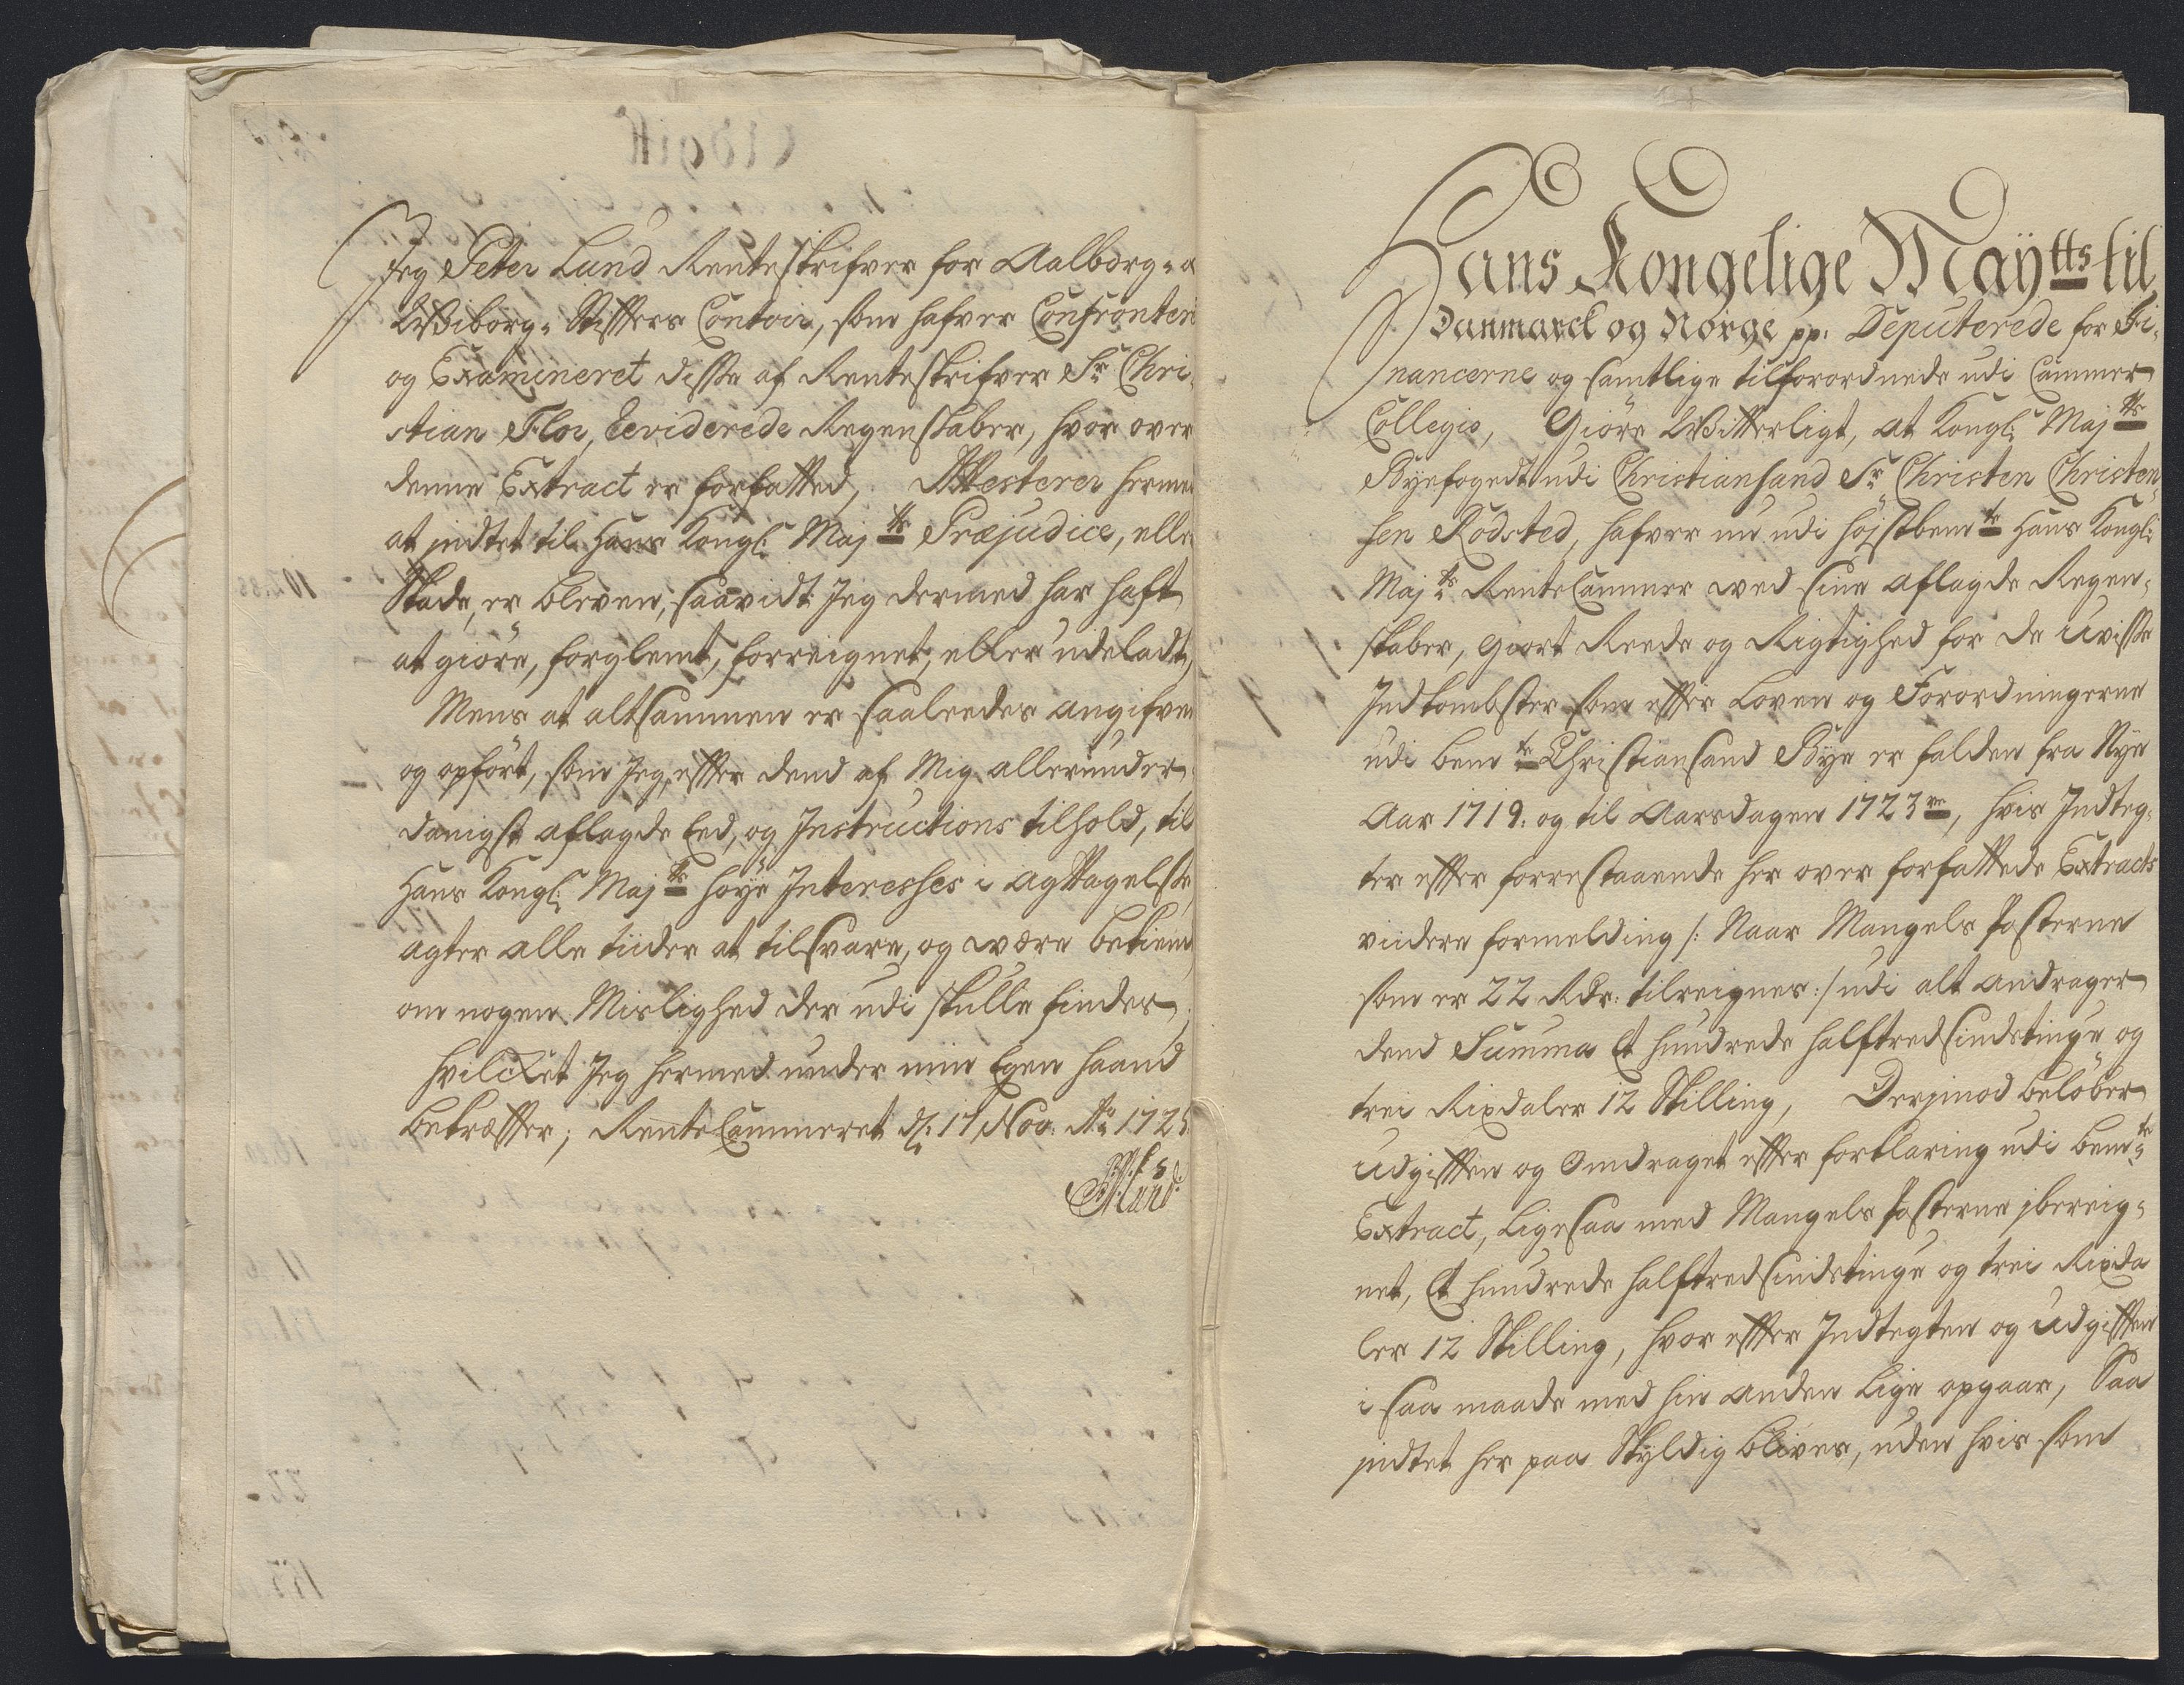 Jeg Peter Lund Renteskrifver for Aalborg- o
Wiborg- Stifters Contoir, som hafver Confronteri
og Examineret disse af Renteskrifver Sr Chri-
stian Flor, Reviderede Regenskaber, hvor over
denne Extract er forfatted, Attesterer herme
at indtet til Hans Kongl: Majts Præjudice, elle
Skade, er bleven, saavidt Jeg dermed har haft
at giøre, forglemt, forreignet, eller udeladt,
Mens at altsammen er saaledes angifven
og opført, som Jeg, effter dend af Mig allerunder-
danigst aflagde Eed, og Instructions tilhold, til
Hans Kongl: Majts høye Interesses i agttagelse,
agter alle tiider at tilsvare, og være bekiend
om nogen Mislighed der udi skulle findes,
hvilcket Jeg hermed under min Egen haand
bekræffter; RenteCammeret d: 17 Nov: Ao 1725
PLund
Hans Kongelige Maÿtts til
Danmarck og Norge pp: Deputerede for Fi-
nancerne og samtlige tilforordnede udi Cammer
Collegio, Giøre Witterligt, at Kongl: Majts
Byefogedt udi Christiansand Sr Christen Christen-
sen Rodsted, hafver nu udi højstbemte Hans Kongl:
Majts RenteCammer ved sine aflagde Regen-
skaber, giort Reede og Rigtighed for de Uvisse
Indkombster, som effter Loven og Forordningerne
udi bemte Christiansand Bye er falden fra Nye
Aar 1719. og til Aarsdagen 1723de, hvis Indteg-
ter effter forrestaaende her over forfattede Extracts
viidere formelding /: Naar Mangels Posterne
som er 22 Rdr: tilreignes :/ udi alt andrager
dend Summa Et hundrede halftredsindstinge og
trei Rixdaler 12 Skilling, Derimod beløber
Udgifften og Omdraget effter forklaring udi bemte
Extract, Ligesaa med Mangels Posterne ibereig-
net, Et hundrede halftredsindstinge og trei Rixda
ler 12 Skilling, hvor effter Indtegten og Udgifften
i saa maade med hin anden Lige opgaar, Saa
indtet her paa Skyldig blives, uden hvis som